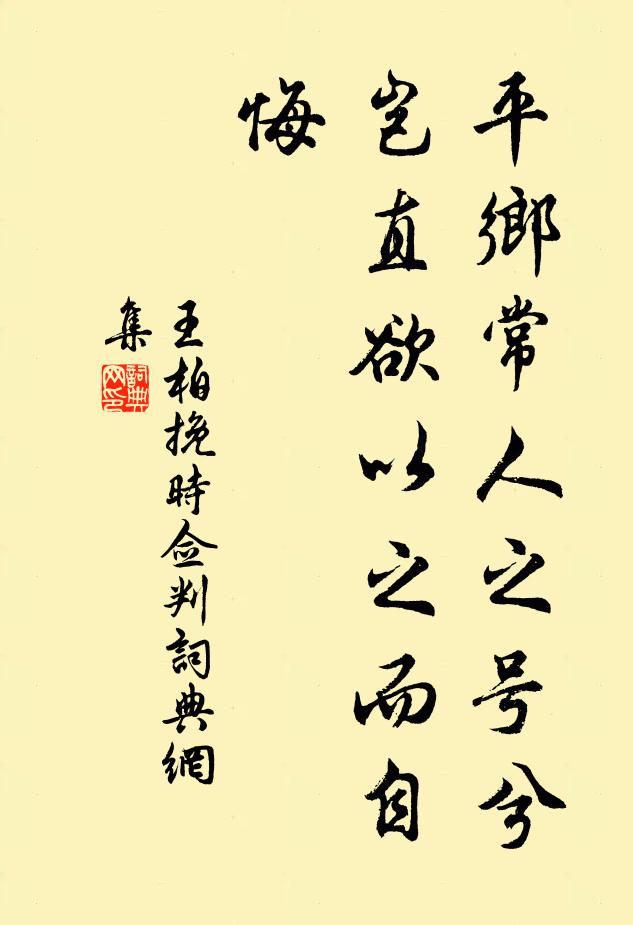 平鄉常人之号兮
岂直欲以之而自
悔
王柏挽時佥判詞典網
集
詞典
网印